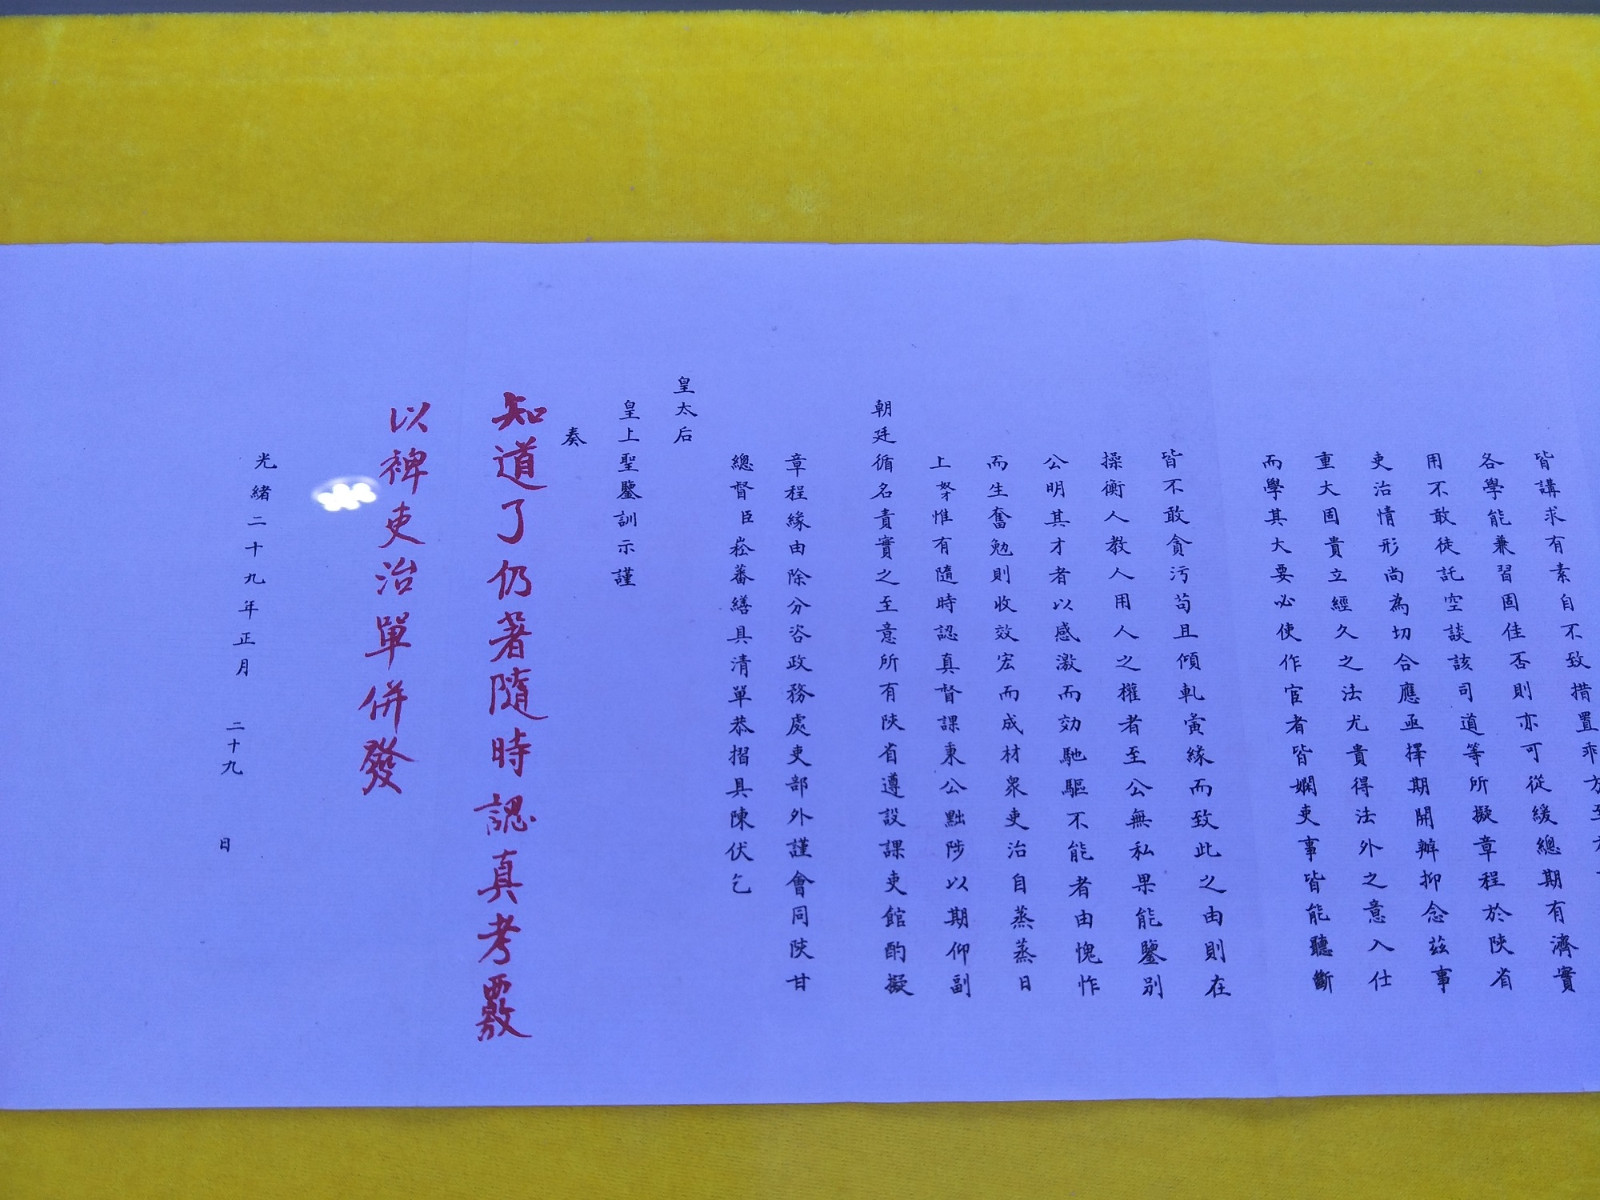 皆講求有素自不致措置乖方至
各學能兼習固佳否則亦可從緩總期有濟實
用不敢徒託空談該司道等所擬章程於陝省
吏治情形尚為切合應亟擇期開辦抑念茲事
重大固貴立經久之法尤貴得法外之意入仕
而學其大要必使作官者皆嫻吏事皆能聽斷
皆不敢貪污苟且傾軋寅緣而致此之由則在
操衡人教人用人之權者至公無私果能鑒別
公明其才者以感激而効馳驅不能者由愧怍
而生奮勉則收效宏而成材衆吏治自蒸蒸日
上孥惟有隨時認真督課秉公黜陟以期仰副
朝廷循名責實之至意所有陝省遵設課吏館酌擬
章程緣由除分咨政務處吏部外謹會同陝甘
總督臣崧蕃繕具清單恭摺具陳伏乞
皇太后
皇上聖鑒訓示謹
奏
知道了仍著隨時認真考覈
以裨吏治單併發
光緒二十九年正月 二十九 日